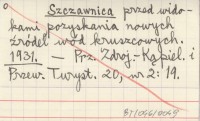 Szczawnica przed wido-
kami pozyskania nowych
źródeł wód kruszcowych.
1931. — Prz. Zdroj.-Kąpiel. i
Przew. Turyst. 20, nr 2: 19.